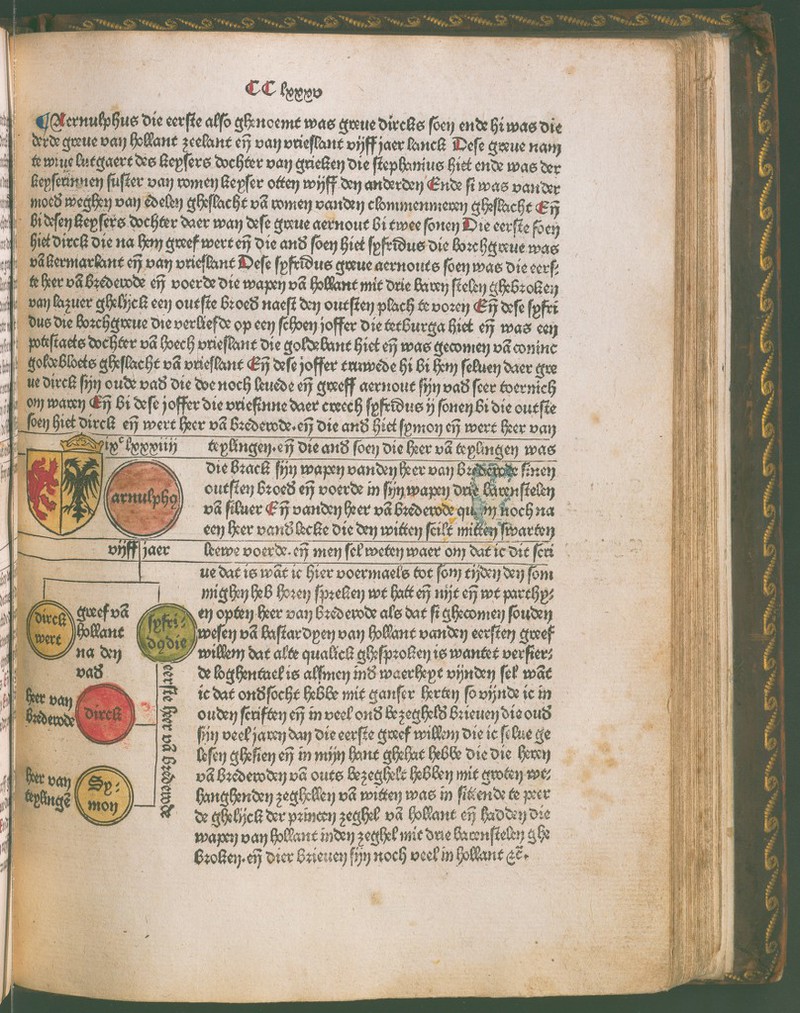 CC lxxxv
Aernulphus die eerste also ghenoemt was greue dircks soen ende hi was die
derde greue van hollant zeelant eñ van vrieslant vijff jaer lanck Dese greue nam
te wiue lutgaert des keysers dochter van grieken die stephanius hiet ende was der
keyserinnen suster van romen keyser otten wijff den anderden Ende si was van der
moed weghen van edelen gheslacht vā romen vanden clommenmeren gheslacht Eñ
bi desen keysers dochter daer wan dese greue aernout bi twee sonen Die eerste soen
hiet dirck die na hem greef wert eñ die and soen hiet syfridus die borchgreue was
vā kermarlant eñ van vrieslant Dese syfridus greue aernouts soen was die eers-
te heer vā brederode eñ voerde die wapen vā hollant mit drie baren stelen ghebroken
van lazuer ghelijck een outste broed naest den outsten plach te voren Eñ dese syfri
dus die borchgreue die verliefde op een schoen joffer die tetburga hiet eñ was een
potestaets dochter vā hoech vrieslant die goldebant hiet eñ was gecomen vā coninc
goldebloets gheslacht vā vrieslant Eñ dese joffer truwede hi bi hem seluen daer gre
ue dirck sijn oude vad die doe noch leuede eñ greeff aernout sijn vad seer toernich
om waren Eñ bi dese joffer die vriesinne daer creech syfridus ij sonen bi die outste
soen hiet dirck eñ wert heer vā brederode. eñ die and hiet symon eñ wert heer van
teylingen. eñ die and soen die heer vā teylingen was
die brack sijn wapen vanden heer van brederode sinen
outsten broed eñ voerde in sijn wapen drie barenstelen
vā siluer Eñ vanden heer vā brederode quam noch na
een heer vand lecke die den witten scilt mitten swarten
leewe voerde. eñ men sel weten waer om dat ic dit scri
ue dat is wāt ic hier voermaels tot som tijden den som
mighen heb horen spreken wt hatt eñ nijt eñ wt parthy-
en opten heer van brederode als dat si ghecomen souden
wesen vā bastardyen van hollant vanden eersten greef
willem dat alte qualick ghesproken is want et versier-
de loghentael is alsmen ind waerheyt vijnden sel wāt
ic dat ondsocht hebbe mit ganser herten so vijnde ic in
ouden scriften eñ in veel oud bezegheld brieuen die oud
sijn veel jaren dan die eerste greef willem die ic selue ge
lesen ghesien eñ in mijn hant ghehat hebbe die die heren
vā brederoden vā outs bezeghelt hebben mit groten we-
hanghenden zeghellen vā witten was in sittende te peer
de ghelijck der princen zeghel vā hollant eñ hadden die
wapen van hollant inden zeghel mit drie barenstelen ghe
broken. eñ dier brieuen sijn noch veel in hollant ⁊c̄.
ixᶜ lxxxiiij
arnulphꝯ
vijff jaer
dirck
wert
greef vā
hollant
na den
vad
syfri-
dꝯ die
eerste heer vā brederode
heer van
brederode
dirck
heer van
teylingē
Sy-
mon